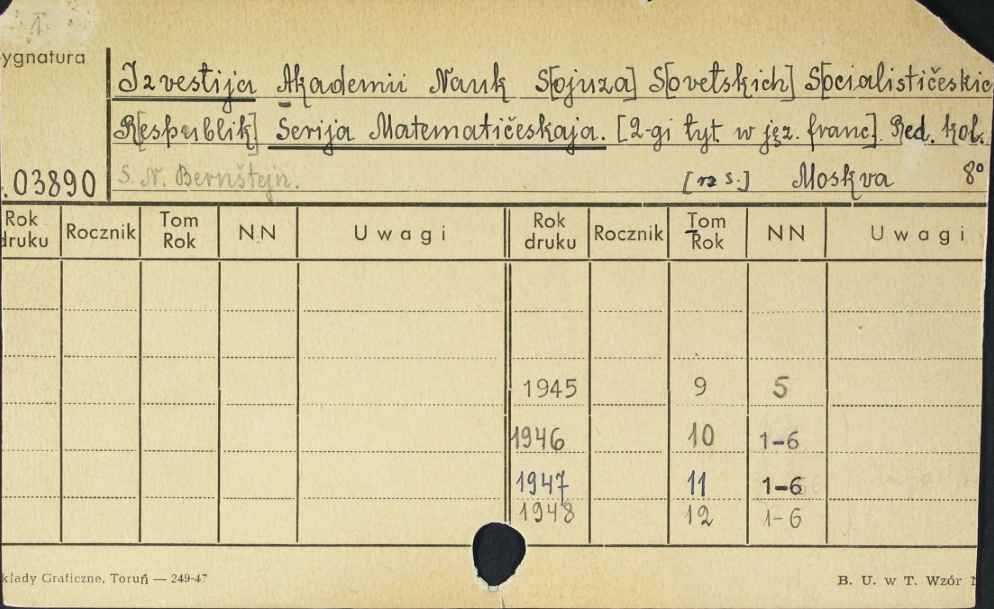 1
ygnatura
Izvestija Akademii Nauk S[ojuza] S[ovetskich] S[ocialističeskic
R[espublik] Serija Matematičeskaja. [2-gi tyt w jęz. franc]. Red. kol.
.03890 S. N. Bernštejn. [rz s.] Moskva 8°
Rok druku Rocznik Tom Rok NN Uwagi Rok druku Rocznik Tom Rok NN Uwagi
1945 9 5
1946 10 1-6
1947 11 1-6
1948 12 1-6
kłady Graficzne, Toruń — 249-47 B. U. w T. Wzór